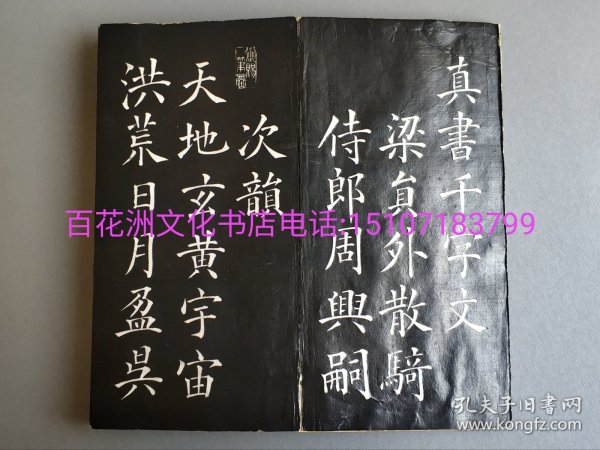 真書千字文
梁貟外散騎
侍郎周興嗣
次韻
天地玄黄宇宙
洪荒日月盈昃
百花洲文化书店电话:15107183799
孔夫子旧书网
www.kongfz.com